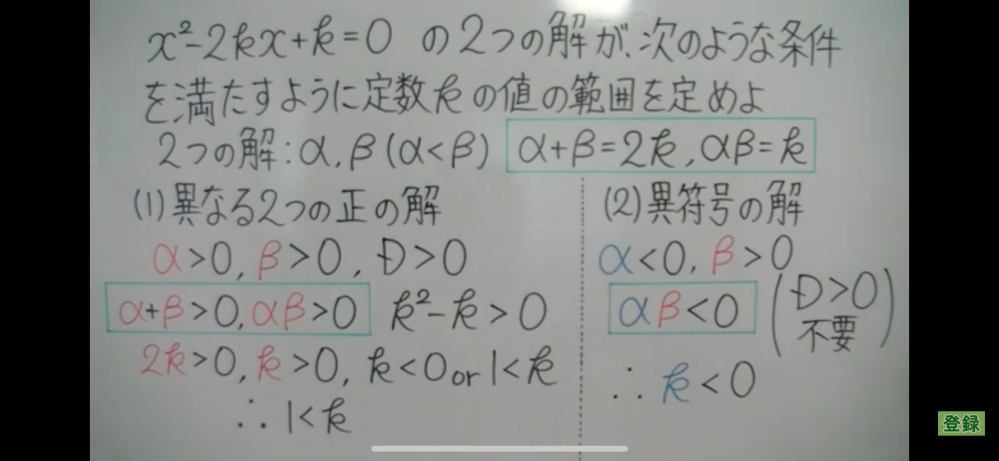 x²-2kx+k=0 の2つの解が、次のような条件
を満たすように定数kの値の範囲を定めよ
2つの解：α, β (α<β) α+β=2k, αβ=k
(1)異なる2つの正の解
α>0, β>0, D>0
α+β>0, αβ>0 k²-k>0
2k>0, k>0, k<0 or 1<k
∴ 1<k
(2)異符号の解
α<0, β>0
αβ<0 (D>0
不要)
∴ k<0
登録